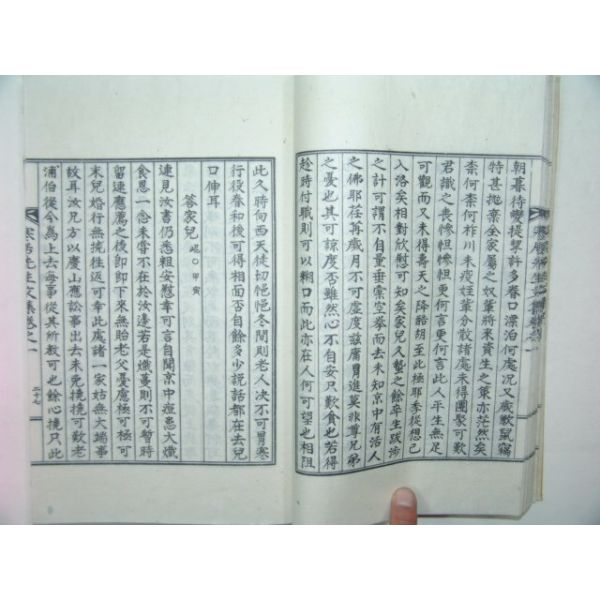 朝暮待變提挈許多眷口漂泊何處況又歲歉鼠竊
特甚拋棄全家屬之奴輩將來資生之策亦茫然矣
柰何柰何柞川來疫姪輩分散諸處未得團聚可歎
君識之喪慘怛慘怛更何言更何言此人平生無
可觀而又未得壽天之降酷胡至此極耶季從想已
入洛矣相對欣慰可知矣家兒久蟄之餘卒生跋涉
之計可謂不自量垂橐空拳而去未知京中有活人
之佛耶荏苒歲月不可虛度該庸冑進莫非尊兄弟
之憂也其可諒度否雖然心不自安只歎貪也若得
趁時付職則可以糊口而此亦在人何可望也相阻
此久時向西天徒切悒悒冬間則老人决不可冒寒
行役春和後可得相面否自餘多少說話都在去兒
口伸耳
答家兒 甲寅
連見汝書仍悉粗安慰幸可言自聞京中痘患大熾
食息一念未嘗不在於汝邊若是熾蔓則不可暫時
留連應薦之後即即下來無貽老父憂慮極可極可
末兒婚行無撓往返可幸此處諸一家姑無大端事
故耳汝兄方以慶山應訟事出去未免撓撓可歎老
浦伯從今為上去每事從其所教可也餘心撓只此
先生文集卷之一
二十七